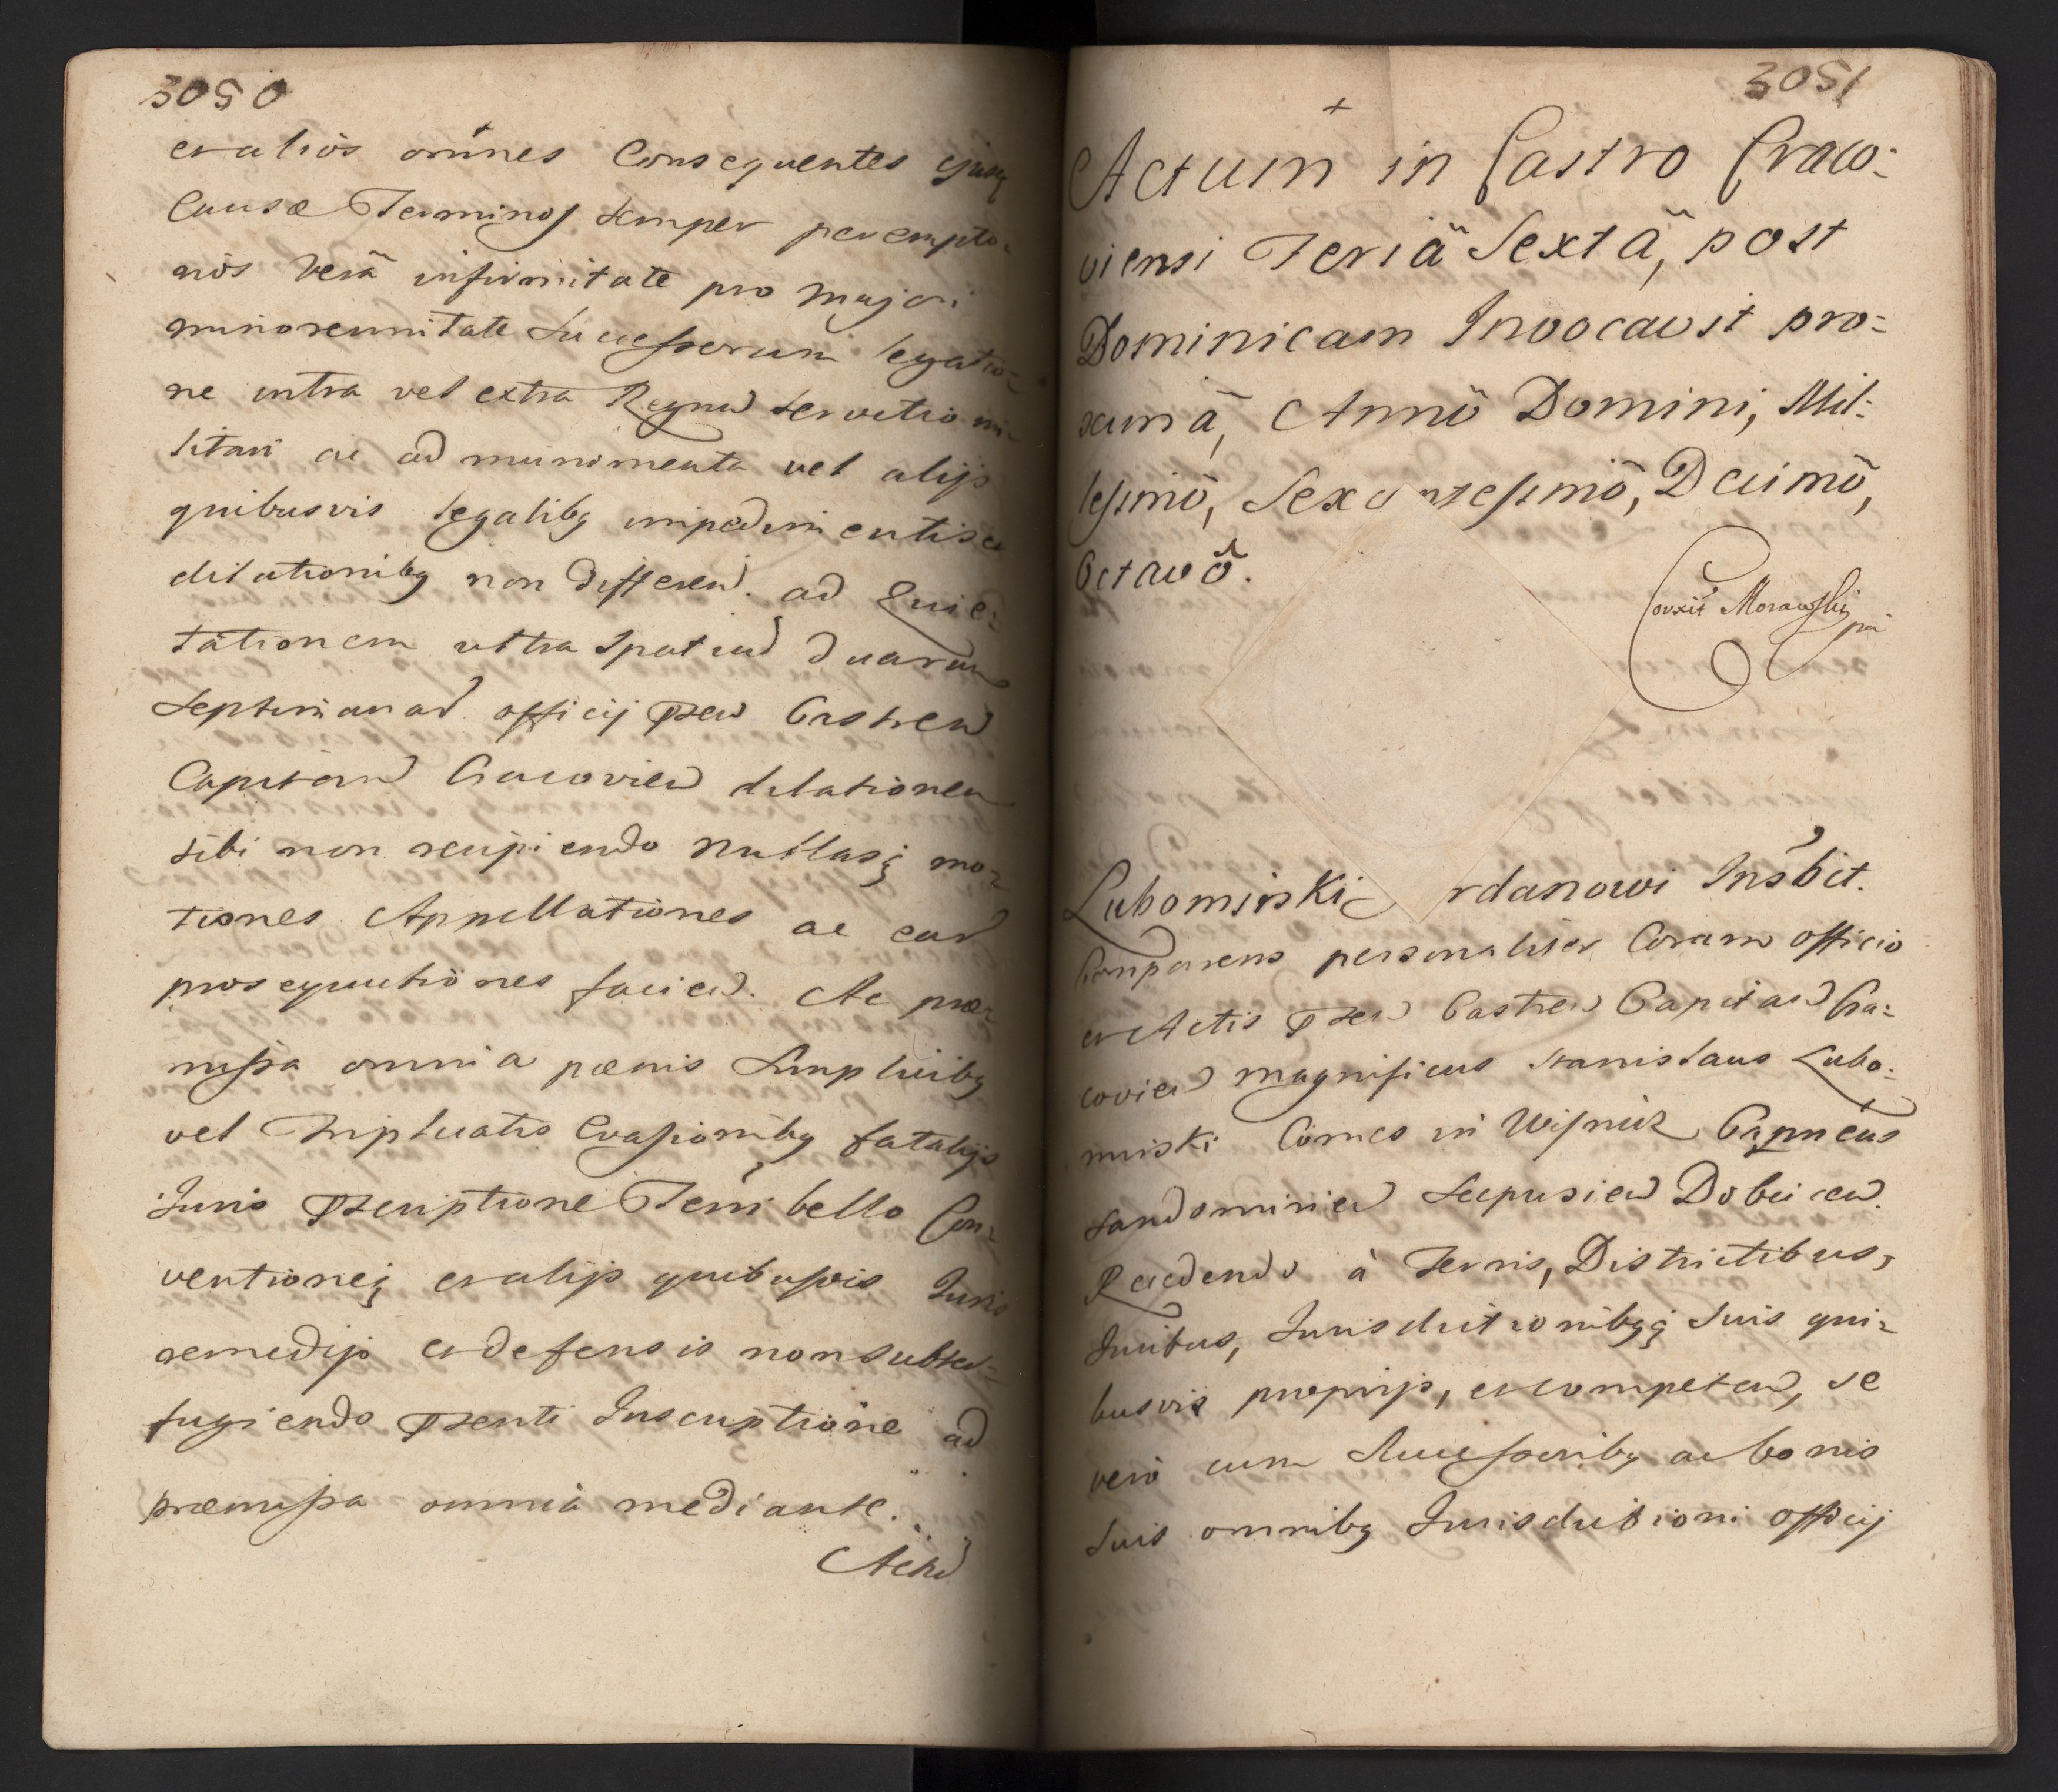 3050
et alios omnes Consequentes ejusq
Causæ Terminos semper perempto-
rios Verâ infirmitate pro Majori
minorennitate Successorum legatio-
ne intra vel extra Regnu servitio mi-
litari ac ad munimenta vel alijs
quibusvis legalibq impedimentis et
dilationibq non differen. ad Quie-
tationem ultra Spatiu duarum
Septimanar. officij Pseu Castren
Capitan Cracovien dilationem
sibi non recipiendo Nullasq mo-
tiones Appellationes ac ear
prosequutiones facien. Ac præ-
missa omnia pœnis simplicibq
vel Triplicatis Evasionibq fatalijs
Juris Pscriptione Terri bello Con-
ventioneq et alijs quibusvis Juris
remedijs et defensis non subter-
fugiendo Psenti Inscriptione ad
præmissa omnia mediante.
Actu
3051
Actum in Castro Craco-
viensi Feriä Sextä, post
Dominicam Invocavit pro-
ximä, Annö Domini, Mil-
lesimö, Sexcentesimö, Decimö,
Octavö.
Corxit Morawski
Lubomirski rdanowi Insbit.
Comparens personaliter Coram officio
et Actis Psen Castren Capitan Cra-
covien Magnificus Stanislaus Lubo-
mirski Comes in Wisnicz Capneus
Sandomirien Scepusien Dobcicen
Recedendo à Terris, Districtibus,
Juribus, Jurisdictionibqq suis qui-
busvis proprijs, et competen, se
verò cum Successoribq ac bonis
suis omnibq Jurisdictioni officij